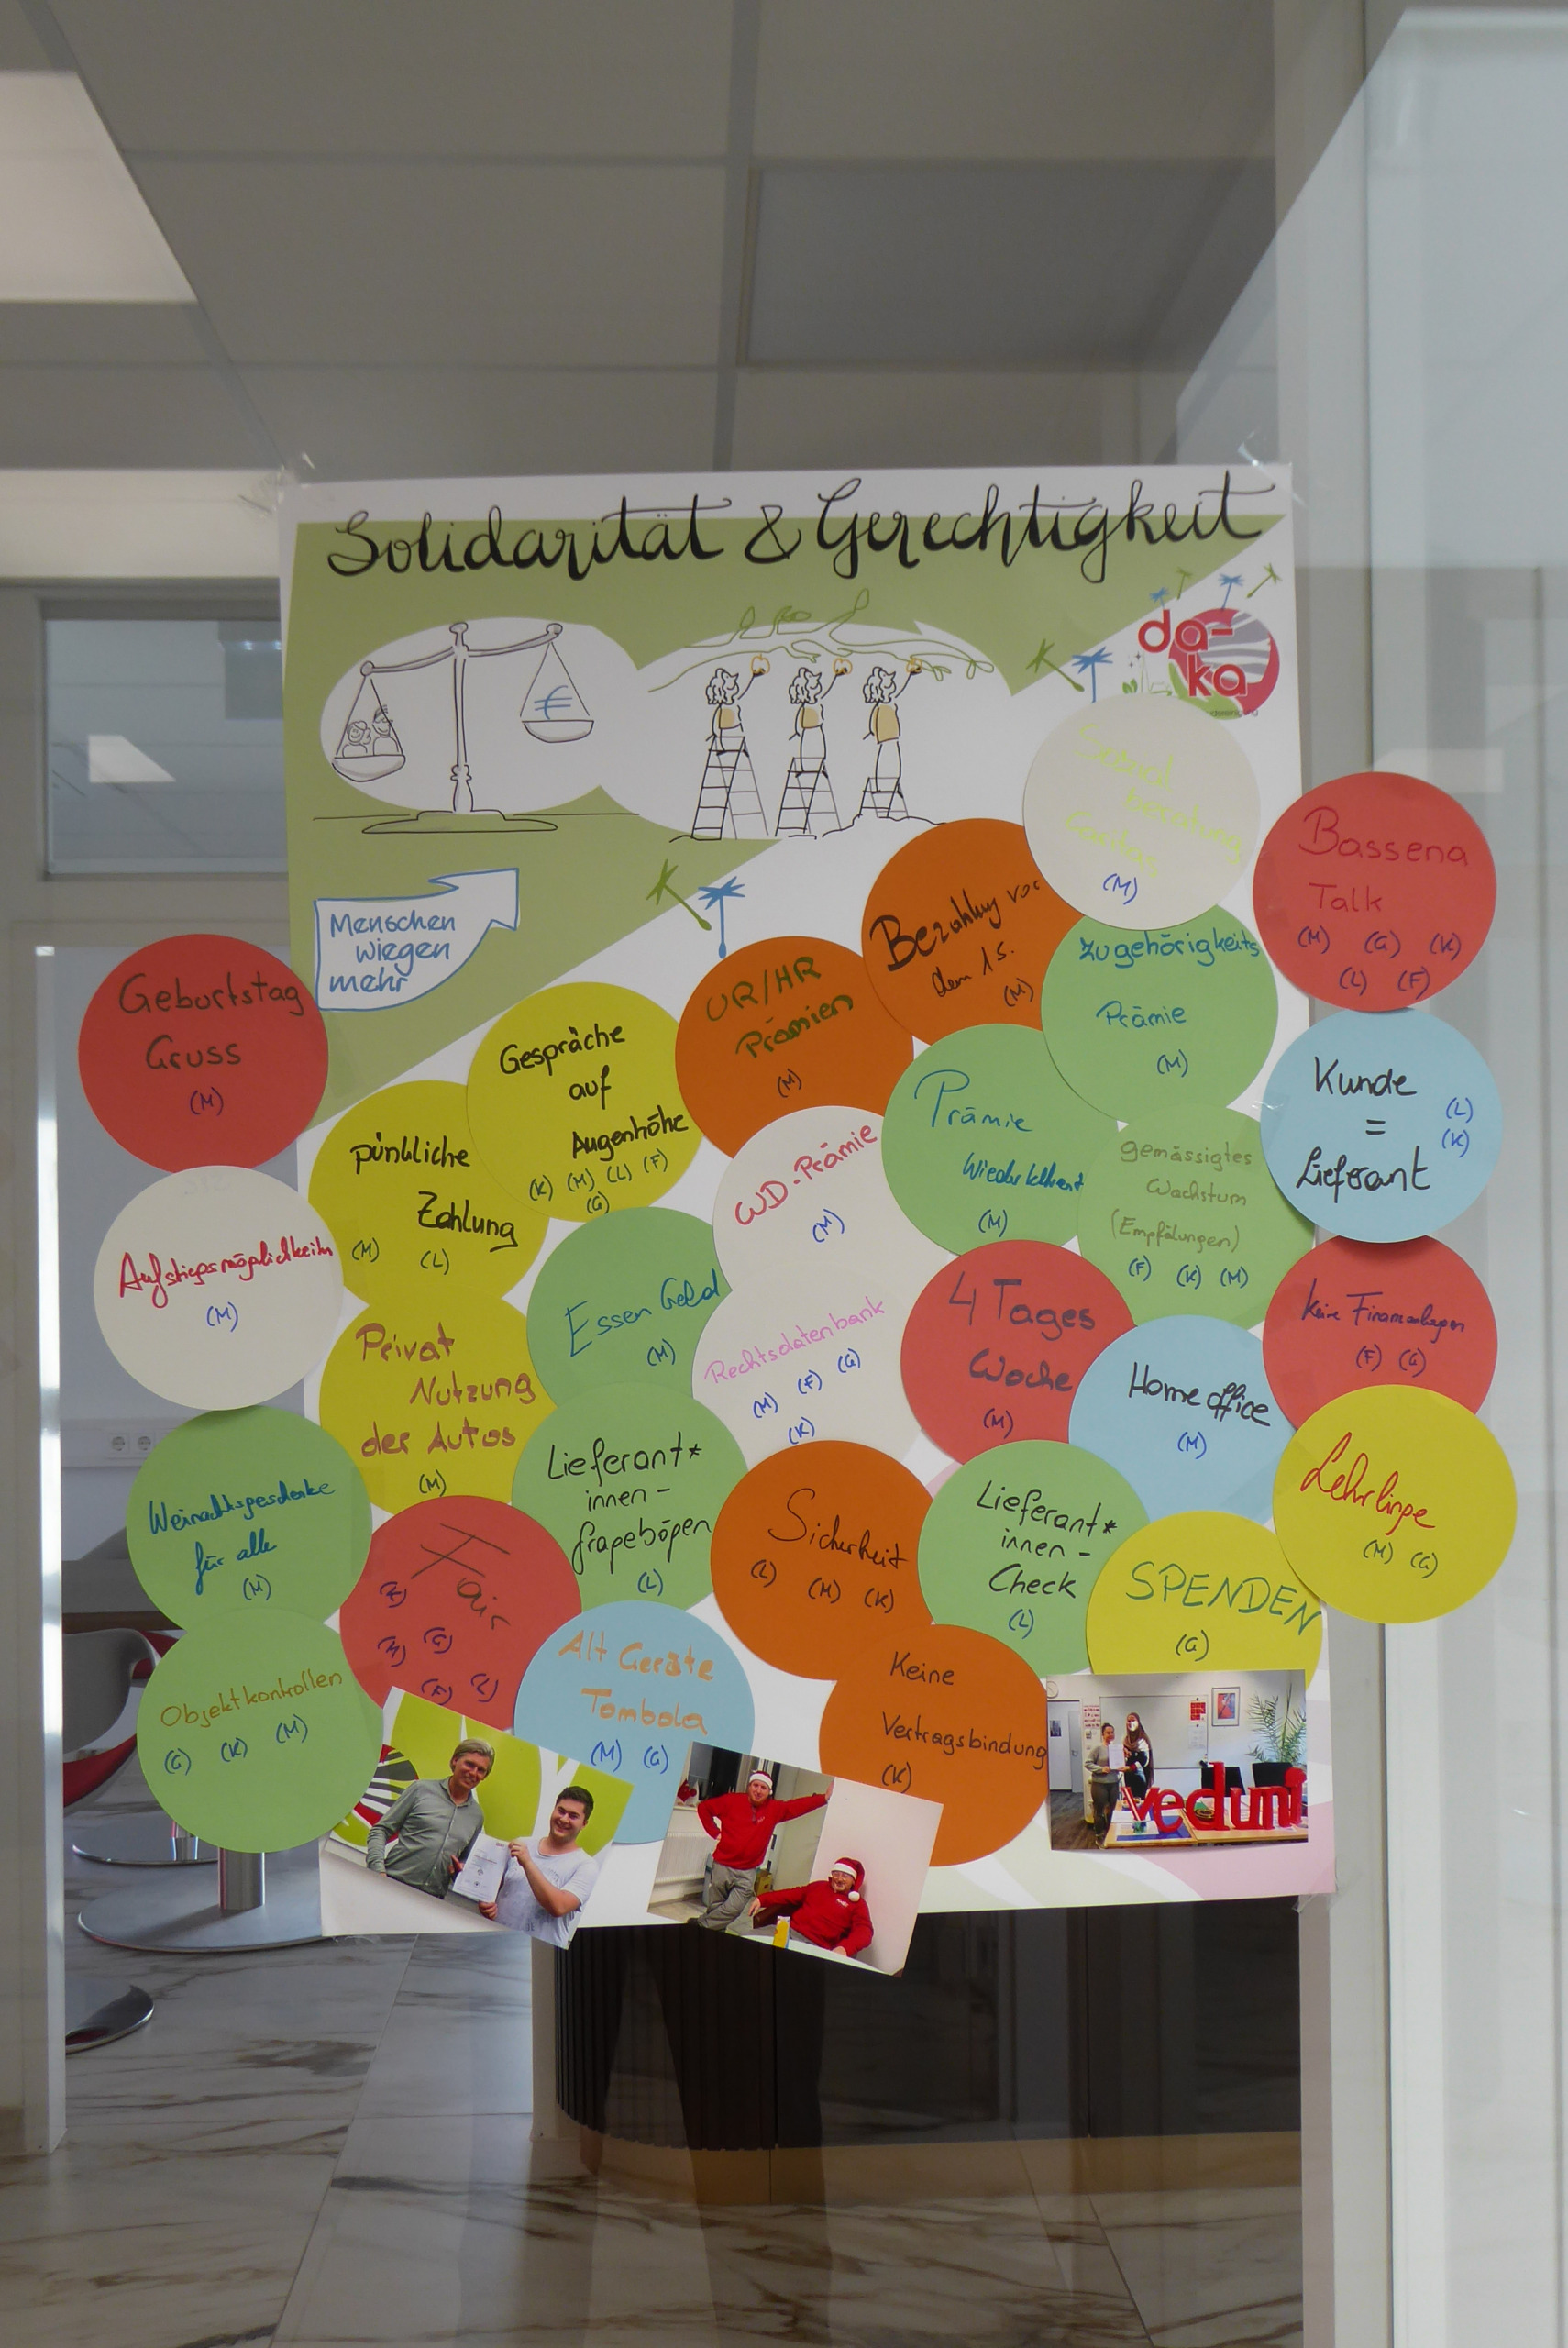 Solidarität & Gerechtigkeit
da-
ka
€
Menschen
wiegen
mehr
Sozial
beratung
Caritas
(M)
Bassena
Talk
(M) (G) (K)
(L) (F)
Bezahlung vor
dem 15.
(M)
Zugehörigkeits
Prämie
(M)
Geburtstag
Gruss
(M)
Gespräche
auf
Augenhöhe
(K) (M) (L) (F)
(G)
UR/HR
Prämien
(M)
Prämie
(M)
Kunde
=
Lieferant
(L)
(K)
pünkliche
Zahlung
(M) (L)
WD-Prämie
(M)
gemässigtes
Wachstum
(Empfälungen)
(F) (K) (M)
Aufstiegsmöglichkeiten
(M)
Essen Geld
(M)
Rechtsdatenbank
(M) (F) (G)
(K)
4 Tages
Woche
(M)
keine
(F) (G)
Privat
Nutzung
der Autos
(M)
Home office
(M)
Lehrlinge
(M) (G)
Weinachtsgeschenke
für alle
(M)
Lieferant*
innen-
fragebögen
(L)
Sicherheit
(L) (M) (K)
Lieferant*
innen-
Check
(L)
Fair
(K)
(M) (G)
(F) (L)
SPENDEN
(G)
Objektkontrollen
(G) (K) (M)
Alt Geräte
Tombola
(M) (G)
Keine
Vertragsbindung
(K)